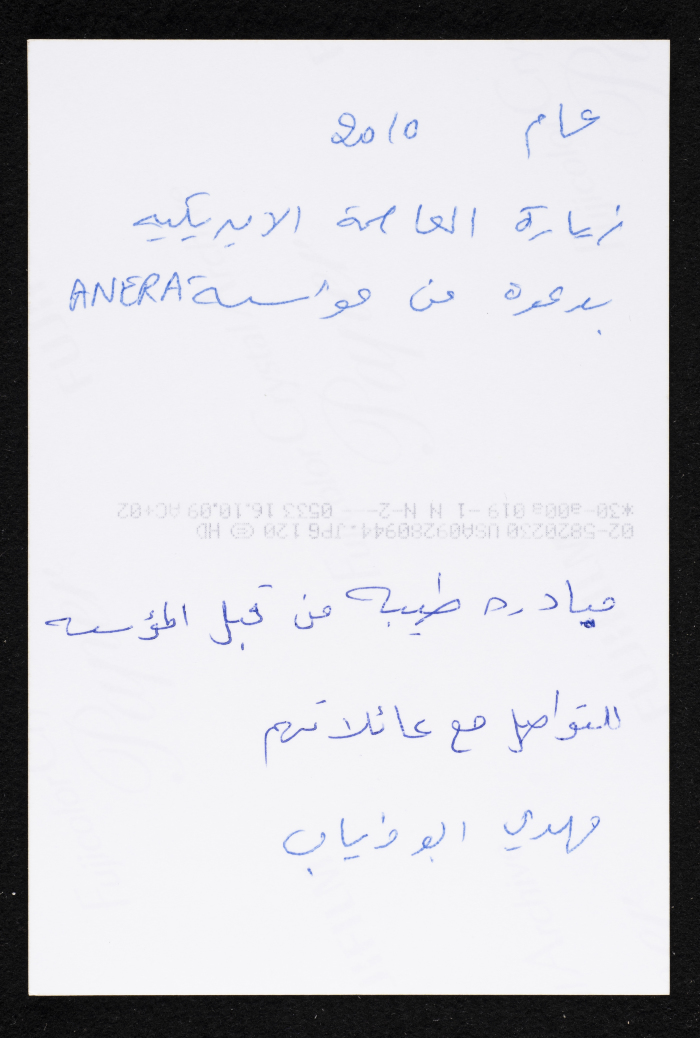 عام 2010
زيارة العاصمة الامريكيه
بدعوة من مواسسة ANERA
02-5820230 USA09280944.JPG 120 HD
*30-a00a019-1 N N N-2--- 0533 16.10.09 AC+02
مبادره طيبه من قبل المؤسسه
للتواصل مع عائلاتهم
مهدي ابو ذياب